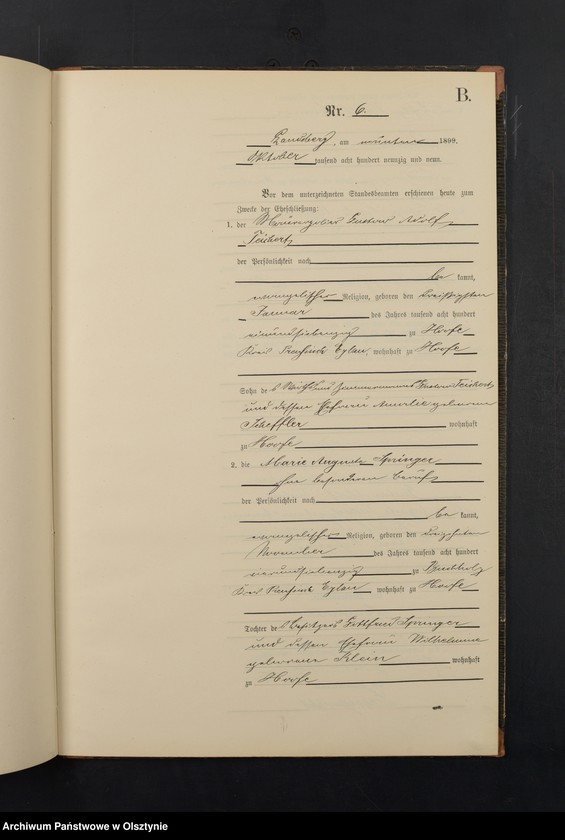 B.
Nr. 6.
Landsberg, am neunten 1899,
Oktober tausend acht hundert neunzig und neun.
Vor dem unterzeichneten Standesbeamten erschienen heute zum
Zwecke der Eheschließung:
1. der Gustav Adolf
Teichert
der Persönlichkeit nach
be kannt,
evangelischer Religion, geboren den dreißigsten
Januar des Jahres tausend acht hundert
einundsiebenzig zu Hoofe
Kreis Preußisch Eylau, wohnhaft zu Hoofe
Sohn des und Zimmermanns Gustav Teichert
und dessen Ehefrau Amalie geborene
Scheffler wohnhaft
zu Hoofe
2. die Marie Auguste Springer
ohne besonderen Beruf
der Persönlichkeit nach
be kannt,
evangelischer Religion, geboren den dreizehnten
November des Jahres tausend acht hundert
vierundsiebenzig zu Buchholz
Kreis Preußisch Eylau, wohnhaft zu Hoofe
Tochter des Besitzers Gottfried Springer
und dessen Ehefrau Wilhelmine
geborene Klein wohnhaft
zu Hoofe
Archiwum Państwowe w Olsztynie